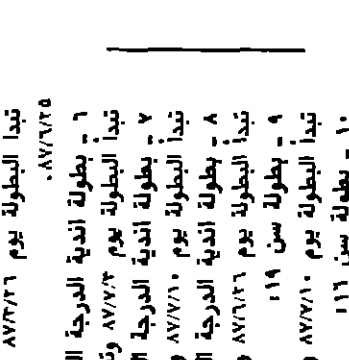 تبدأ البطولة يوم ٨٧/٣/٢٦
٨٧/٦/٢٥.
٦ ـ بطولة اندية الدرجة
تبدأ البطولة يوم ٨٧/٧/٣
٧ ـ بطولة اندية الدرجة
تبدأ البطولة يوم ٨٧/٧/١٠
٨ ـ بطولة اندية الدرجة
تبدأ البطولة يوم ٨٧/٦/٢٦
٩ ـ بطولة سن ١٩:
تبدأ البطولة يوم ٨٧/٧/١٠
١٠ ـ بطولة سن ١٦: